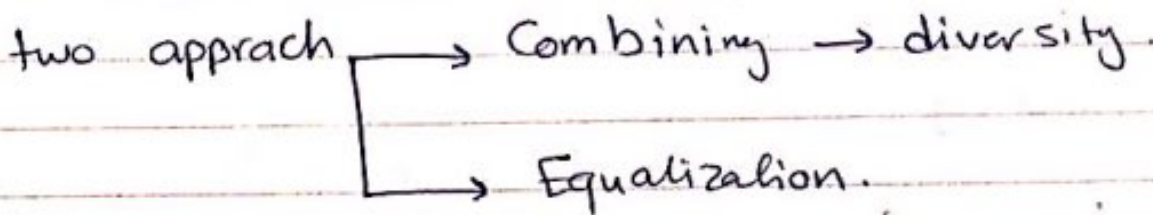 two apprach → Combining → diversity.
→ Equalization.